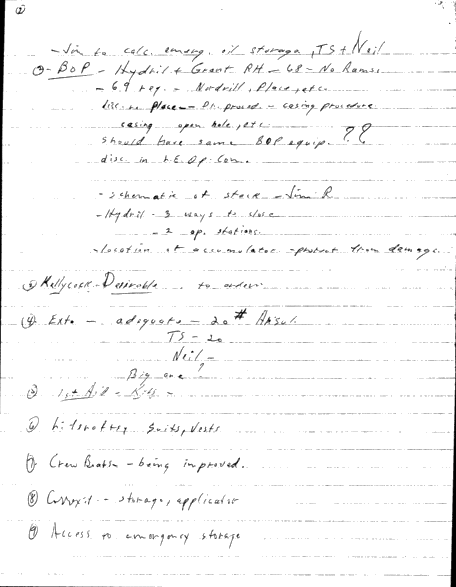 ②
- Jim to calc. emerg. oil storage, TS + Neil
③ - BOP - Hydril + Grant RH - 68 - No Rams.
- 69 reg. - Nordrill, Place, etc.
disc. re Place - Dr. proced. - casing procedure
casing open hole, etc.
should have same BOP equip. ??
disc in L.E. Op. Com.
- schematic of stack - Jim R
- Hydril - 3 ways to close
- 2 op. stations.
- location of accumulator - protect from damage.
Kellycock - Desirable to order
④ Exts - adequate - 20# Ansul.
TS - 20
Neil - ?
Big one
1st Aid - Kits -
⑥ Liferafts, Suits, Vests
⑦ Crew Boats - being improved.
⑧ Corexit - storage, applicator
⑨ Access to emergency storage